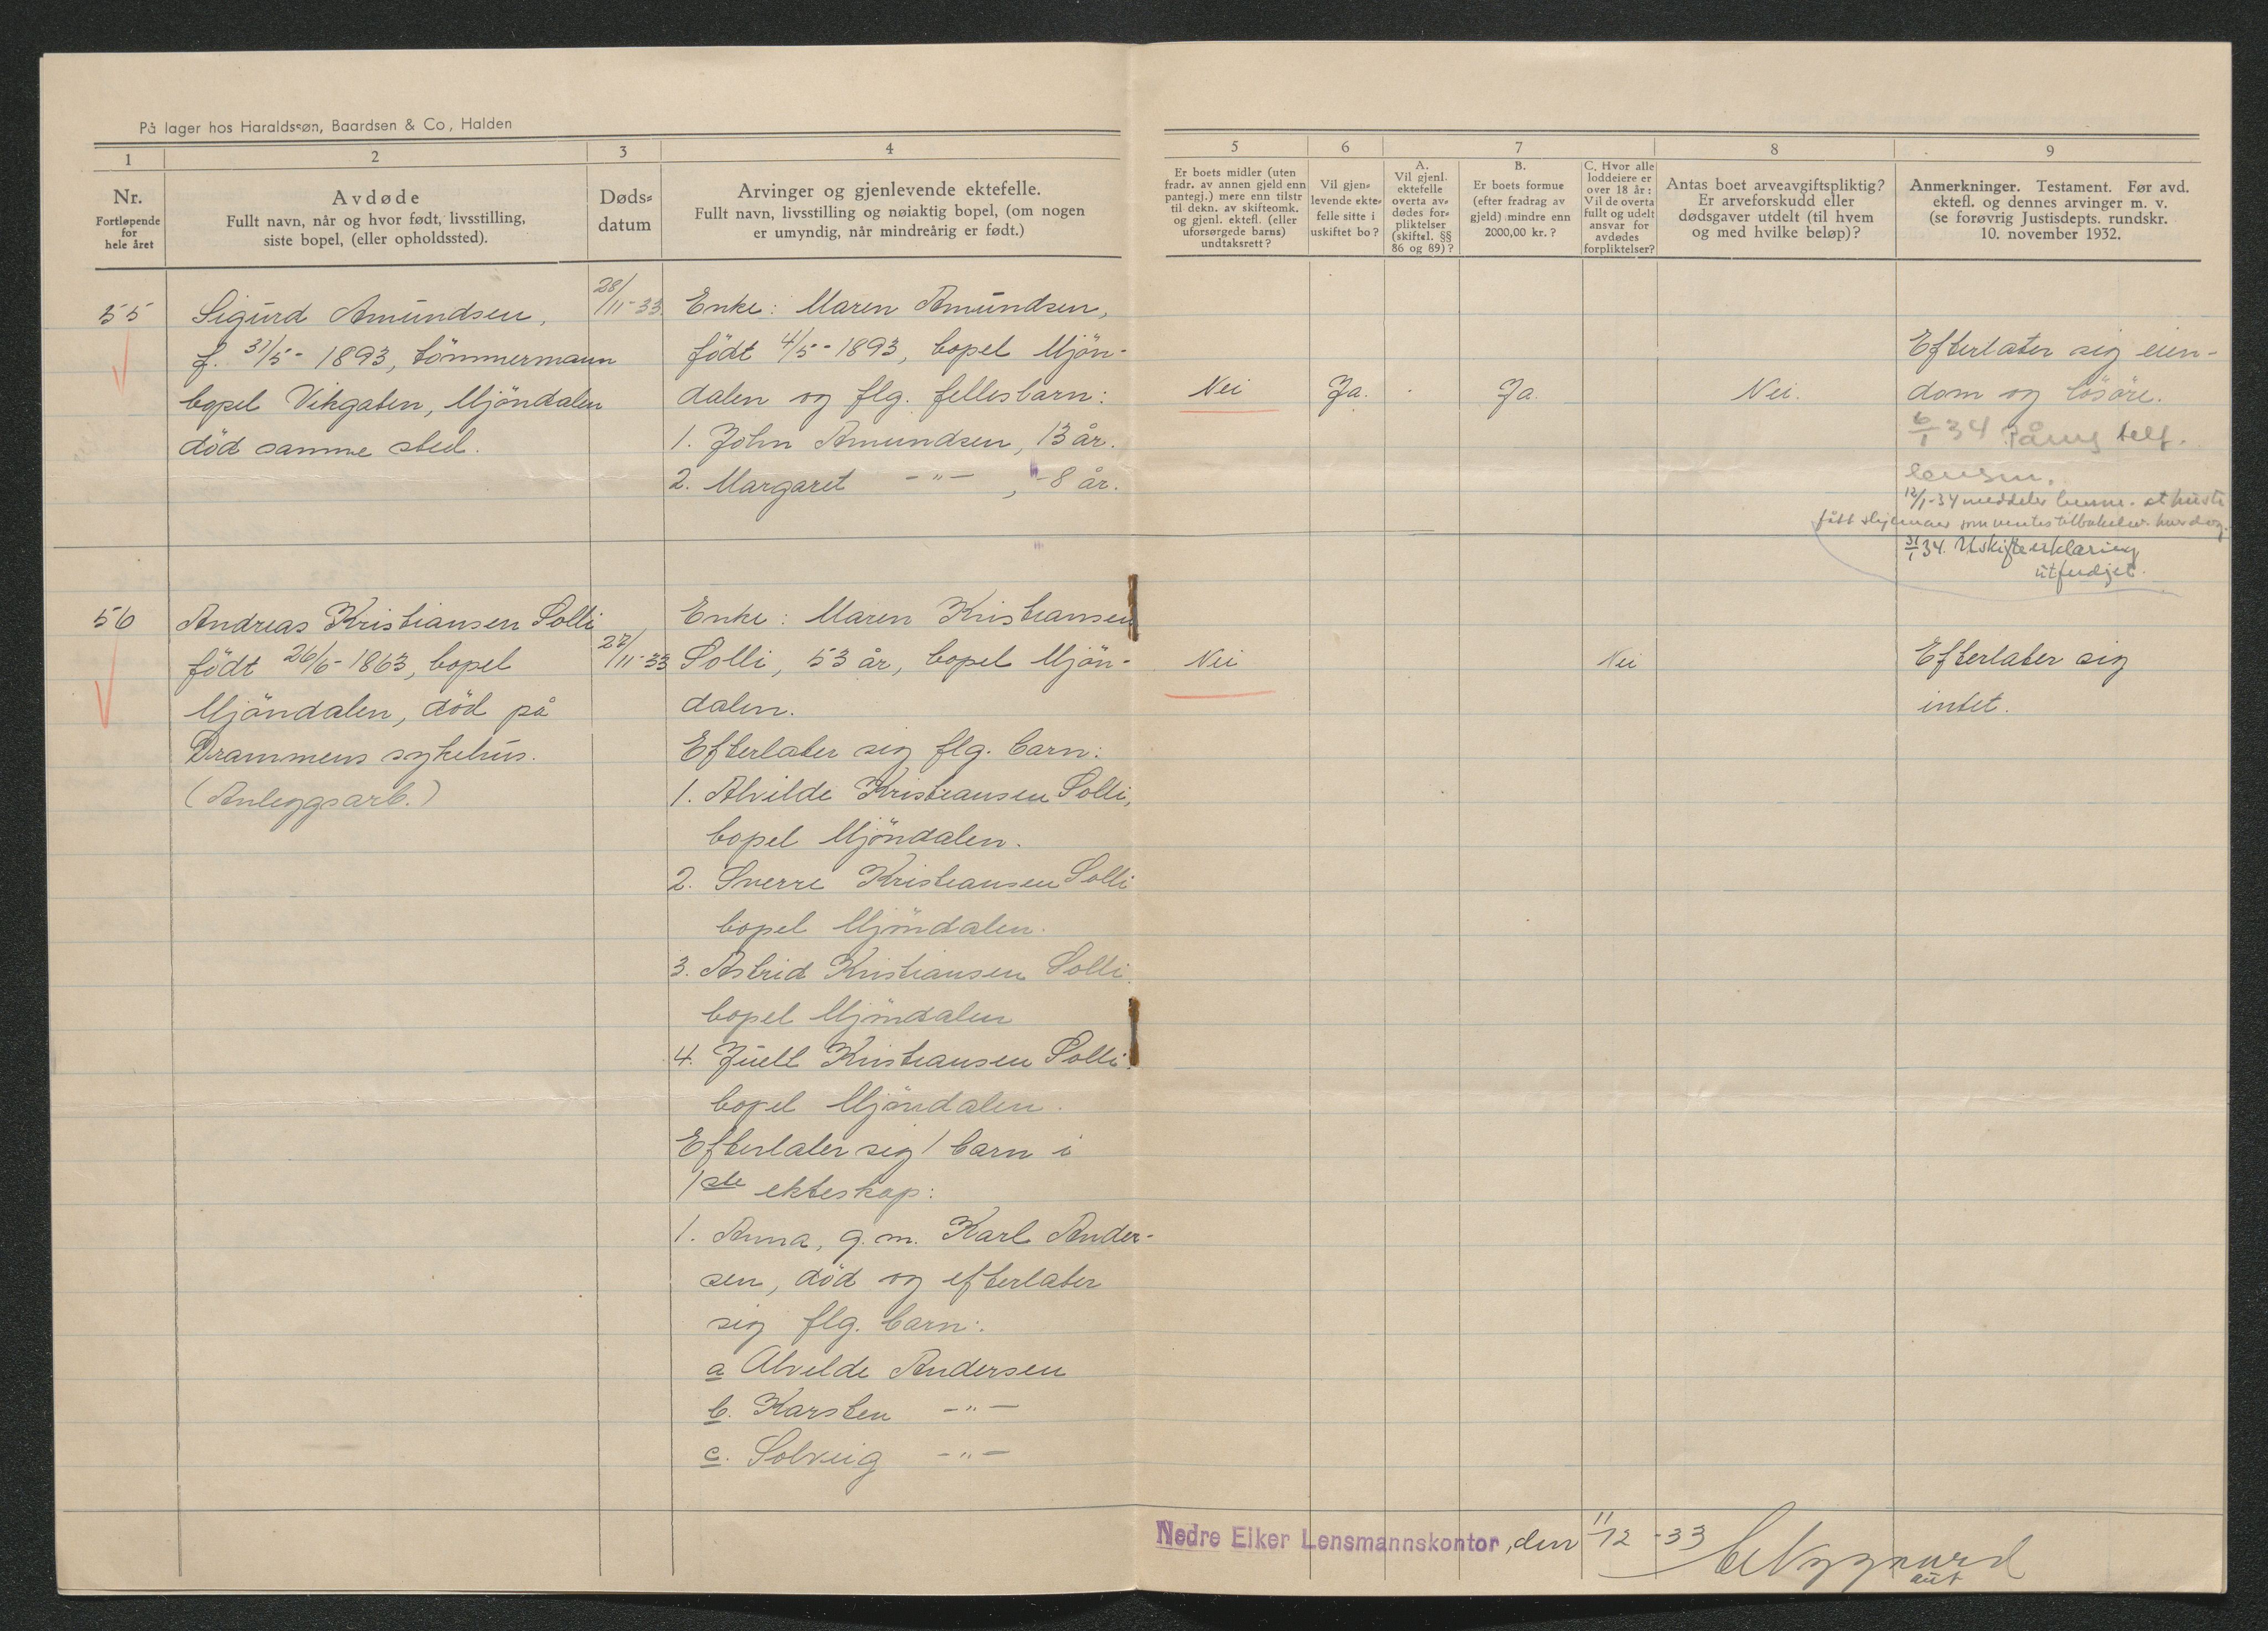 På lager hos Haraldssøn, Baardsen & Co, Halden
1
2
3
4
5
6
7
8
9
Nr.
Fortløpende
for
hele året
Avdøde
Fullt navn, når og hvor født, livsstilling,
siste bopel, (eller opholdssted).
Døds=
datum
Arvinger og gjenlevende ektefelle.
Fullt navn, livsstilling og nøiaktig bopel, (om nogen
er umyndig, når mindreårig er født.)
Er boets midler (uten
fradr. av annen gjeld enn
pantegj.) mere enn tilstr
til dekn. av skifteomk.
og gjenl. ektefl. (eller
uforsørgede barns)
undtaksrett?
Vil gjen=
levende ekte=
felle sitte i
uskiftet bo?
A.
Vil gjenl.
ektefelle
overta av=
dødes for=
pliktelser
(skiftel. §§
86 og 89)?
B.
Er boets formue
(efter fradrag av
gjeld) mindre enn
2000,00 kr.?
C. Hvor alle
loddeiere er
over 18 år:
Vil de overta
fullt og udelt
ansvar for
avdødes
forpliktelser?
Antas boet arveavgiftspliktig?
Er arveforskudd eller
dødsgaver utdelt (til hvem
og med hvilke beløp)?
Anmerkninger. Testament. Før avd.
ektefl. og dennes arvinger m. v.
(se forøvrig Justisdepts. rundskr.
10. november 1932.
55
Sigurd Amundsen,
f. 31/5- 1893, tömmermann
bopel Vikgaten, Mjöndalen
död samme sted.
28/11-33
Enke: Maren Amundsen,
födt 4/5-1893, bopel Mjön-
dalen og flg. fellesbarn:
1. John Amundsen, 13 år.
2. Margaret -"- , 8 år.
Nei
Ja.
Ja.
Nei.
Efterlater sig eien-
dom og lösöre.
6/1 34 telf.
lensm.
12/1-34 meddeler
31/1 34. Uskifteerklæring
utferdjet.
56
Andreas Kristiansen Solli
födt 26/6-1863, bopel
Mjöndalen, död på
Drammens sykehus.
(Anleggsarb.)
27/11-33
Enke: Maren Kristiansen
Solli, 53 år, bopel Mjön-
dalen.
Efterlater sig flg. barn:
1. Alvilde Kristiansen Solli,
bopel Mjöndalen.
2. Sverre Kristiansen Solli
bopel Mjöndalen.
3. Astrid Kristiansen Solli.
bopel Mjöndalen
4. Juell Kristiansen Solli.
bopel Mjöndalen.
Efterlater sig 1 barn i
1ste ekteskap:
1. Anna, g.m. Karl Ander-
sen, död og efterlater
sig flg. barn:
a Alvilde Andersen
b. Karsten -"-
c. Solveig -"-
Nei
Nei
Efterlater sig
intet.
Nedre Eiker Lensmannskontor, den 11/12-33
aut